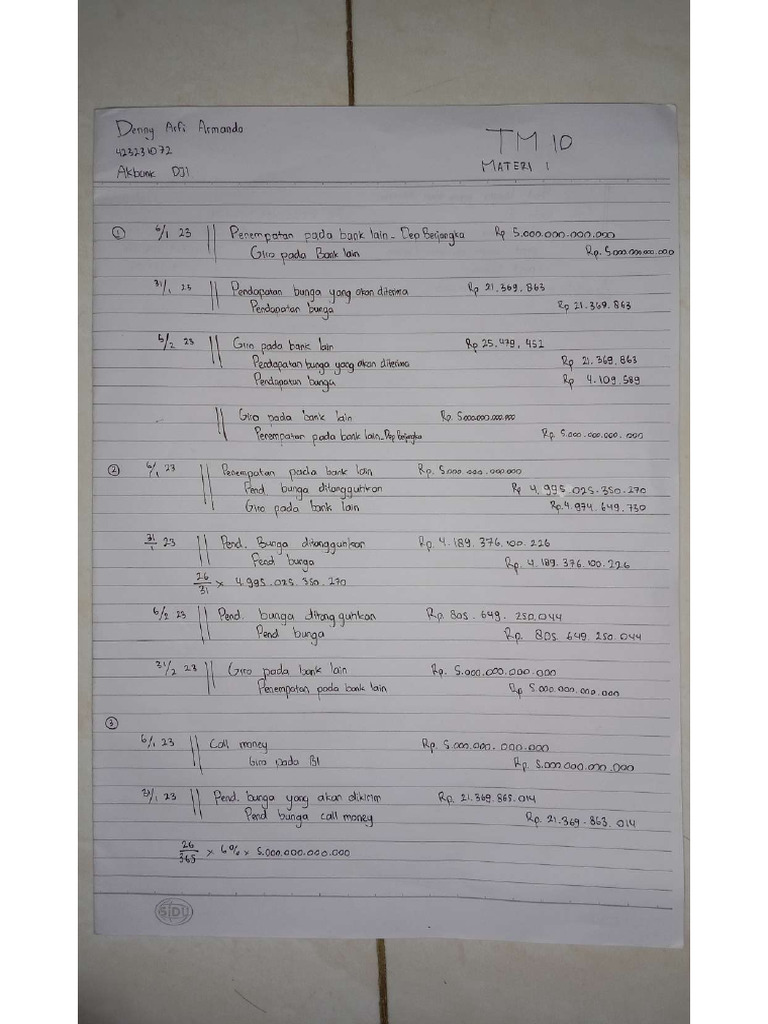 Denny Arfi Armando
TM 10
423231072
MATERI 1
Akbank DJ1
① 6/1 23 Penempatan pada bank lain - Dep Berjangka Rp 5.000.000.000.000
Giro pada Bank lain Rp. 5.000.000.000.000
31/1 23 Pendapatan bunga yang akan diterima Rp 21.369.863
Pendapatan bunga Rp 21.369.863
6/2 23 Giro pada bank lain Rp 25.479.452
Pendapatan bunga yang akan diterima Rp 21.369.863
Pendapatan bunga Rp 4.109.589
Giro pada bank lain Rp. 5.000.000.000.000
Penempatan pada bank lain - Dep Berjangka Rp. 5.000.000.000.000
② 6/1 23 Penempatan pada bank lain Rp. 5.000.000.000.000
Pend. bunga ditangguhkan Rp 4.995.025.350.270
Giro pada bank lain Rp. 4.974.649.730
31/1 23 Pend. Bunga ditangguhkan Rp 4.189.376.100.226
Pend bunga Rp 4.189.376.100.226
26/31 × 4.995.025.350.270
6/2 23 Pend. bunga ditangguhkan Rp. 805.649.250.044
Pend bunga Rp. 805.649.250.044
31/2 23 Giro pada bank lain Rp. 5.000.000.000.000
Penempatan pada bank lain Rp 5.000.000.000.000
③
6/1 23 Call money Rp. 5.000.000.000.000
Giro pada BI Rp. 5.000.000.000.000
31/1 23 Pend. bunga yang akan dikirim Rp. 21.369.865.014
Pend bunga call money Rp. 21.369.863.014
26/365 × 6% × 5.000.000.000.000
SIDU